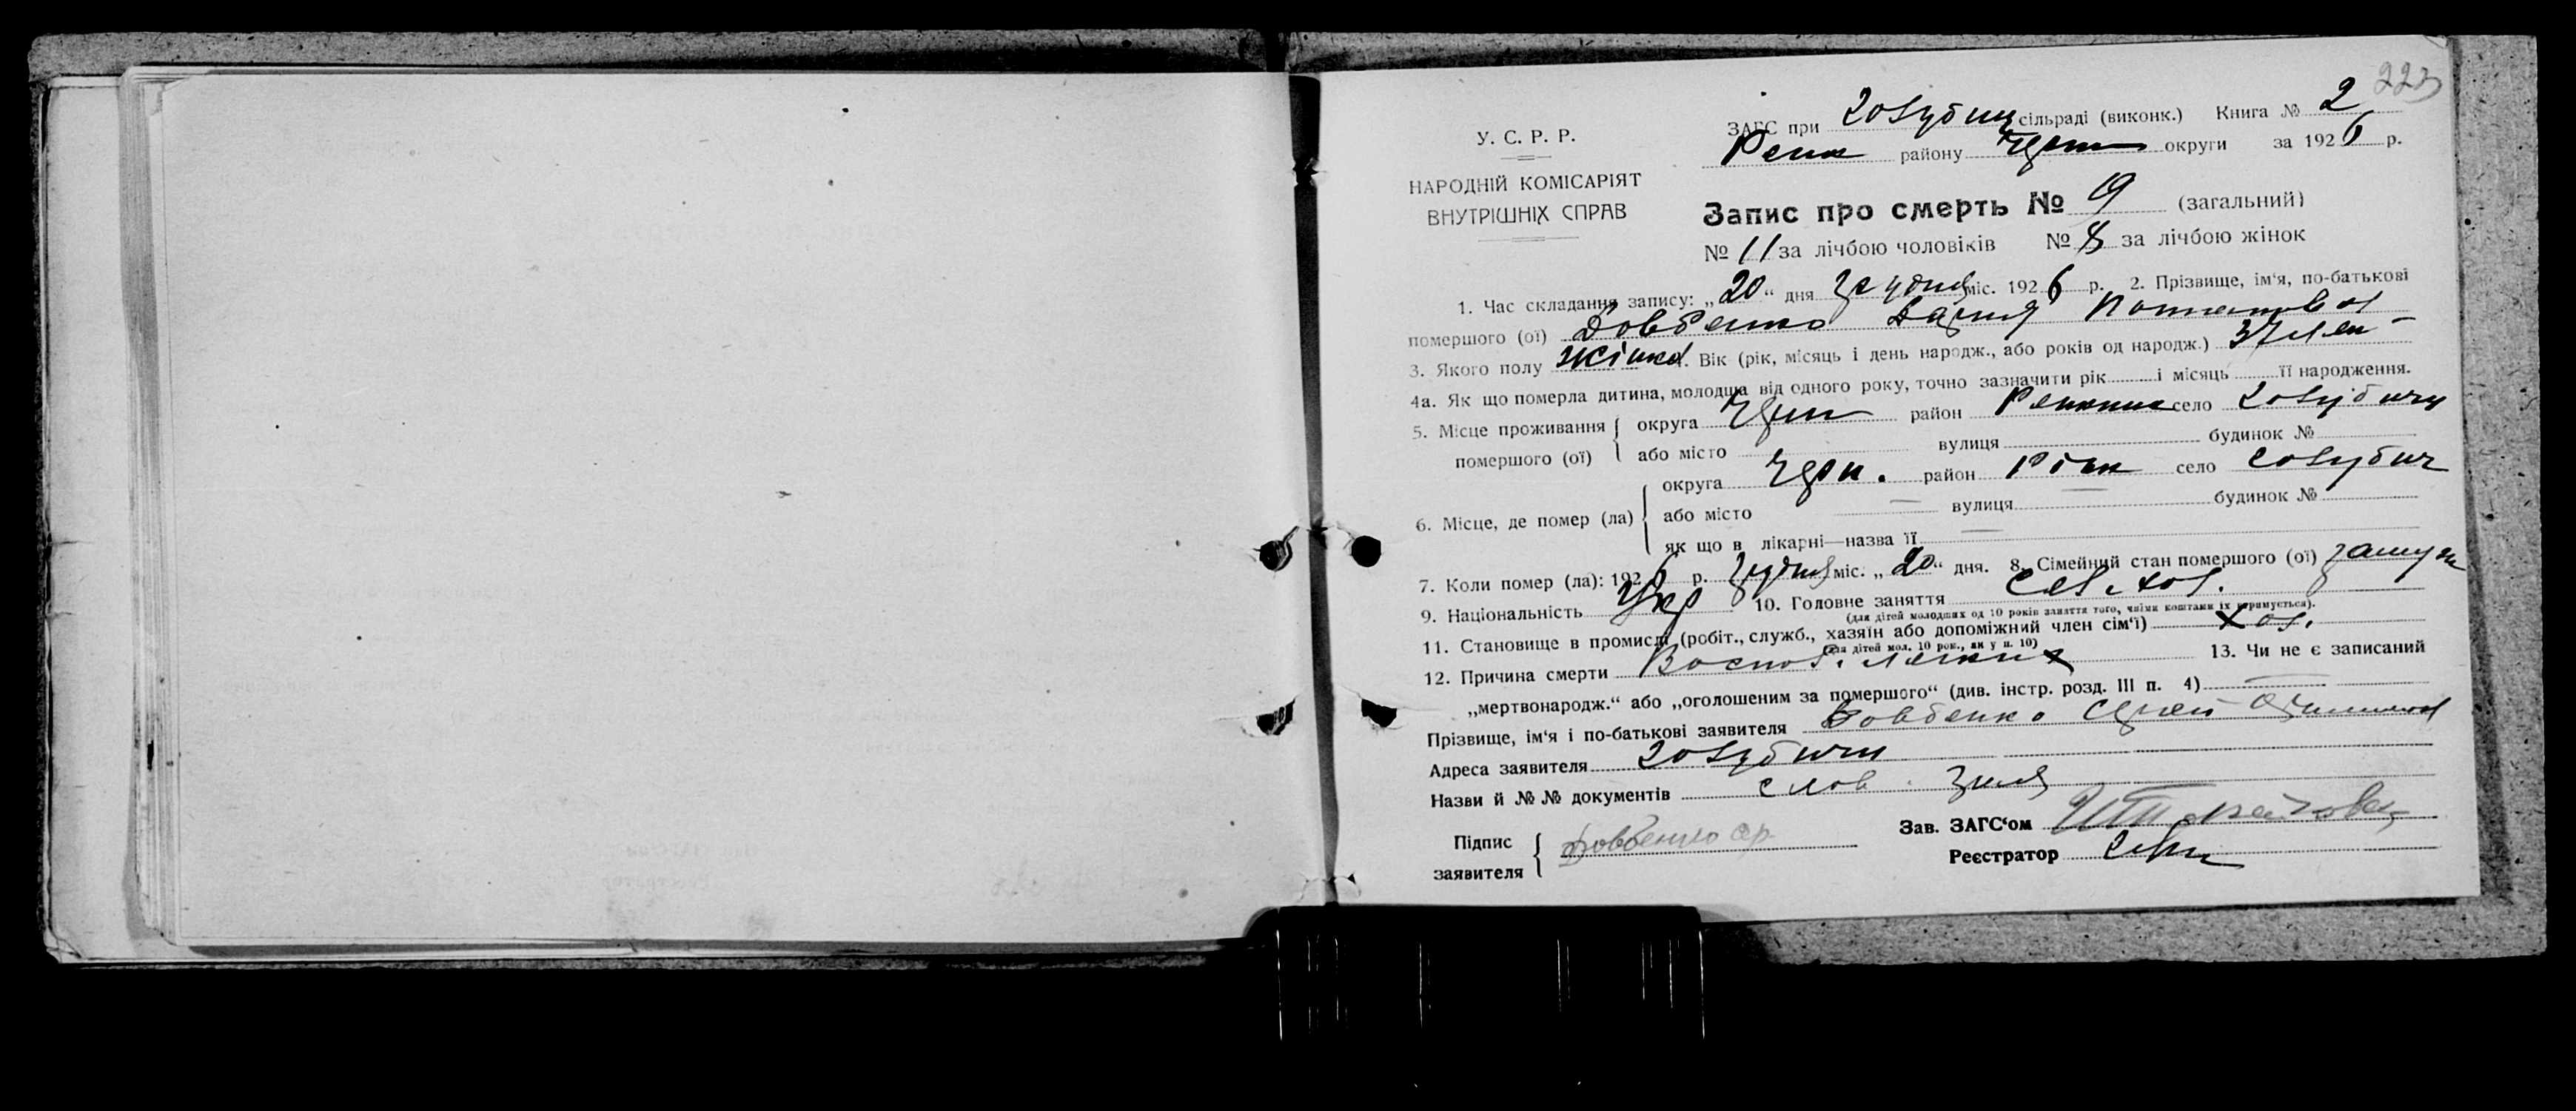 223
У. С. Р. Р.
НАРОДНІЙ КОМІСАРІЯТ
ВНУТРІШНІХ СПРАВ
ЗАГС при Голубич сільраді (виконк.) Книга № 2
району округи за 1926 р.
Запис про смерть № 19 (загальний)
№ 11 за лічбою чоловіків № 8 за лічбою жінок
1. Час складання запису: „20“ дня грудня міс. 1926 р. 2. Прізвище, ім‘я, по-батькові
помершого (ої) Довбенко
3. Якого полу жінка 4. Вік (рік, місяць і день народж., або років од народж.)
4а. Як що померла дитина, молодша від одного року, точно зазначити рік і місяць її народження.
5. Місце проживання помершого (ої) { округа район село Голубичи
або місто вулиця будинок №
6. Місце, де помер (ла) { округа Черн. район село Голубич
або місто — вулиця — будинок №
як що в лікарні—назва її —
7. Коли помер (ла): 1926 р. грудня міс. „20“ дня. 8. Сімейний стан помершого (ої) замуж
9. Національність Укр 10. Головне заняття
(для дітей молодших од 10 років заняття того, чиїми коштами їх утримується).
11. Становище в промислі (робіт., служб., хазяїн або допоміжний член сім‘ї)
(для дітей мол. 10 рок., як у п. 10)
12. Причина смерти Воспол. легких 13. Чи не є записаний
„мертвонародж.“ або „оголошеним за помершого“ (див. інстр. розд. III п. 4) —
Прізвище, ім‘я і по-батькові заявителя Довбенко
Адреса заявителя Голубичи
Назви й №№ документів слов
Підпис заявителя { Довбенко Зав. ЗАГС‘ом
Реєстратор